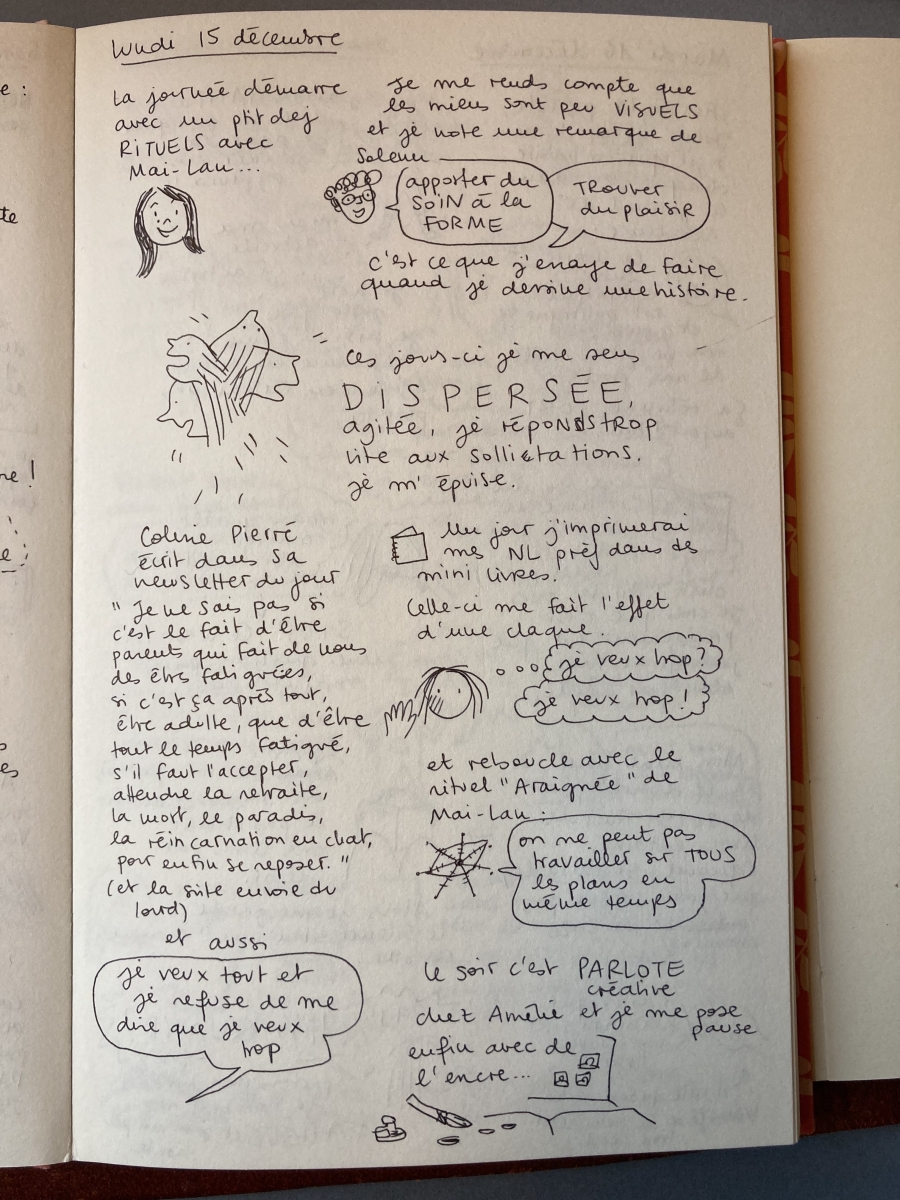 Lundi 15 décembre
La journée démarre
avec un ptit dej
RITUELS avec
Mai-Lan...
Je me rends compte que
les miens sont peu VISUELS
et je note une remarque de
Solenn
apporter du
SOIN à la
FORME
TROUVER
du plaisir
c'est ce que j'essaye de faire
quand je dessine une histoire.
Ces jours-ci je me sens
DISPERSÉE,
agitée, je réponds trop
vite aux
je m'épuise.
Coline Pierré
écrit dans sa
newsletter du jour
"Je ne sais pas si
c'est le fait d'être
parents qui fait de nous
des êtres fatigués,
si c'est ça après tout,
être adulte, que d'être
tout le temps fatigué,
s'il faut l'accepter,
attendre la retraite,
la mort, le paradis,
la réincarnation en chat,
pour enfin se reposer."
(et la suite envoie du
lourd)
et aussi
je veux tout et
je refuse de me
dire que je veux
trop
Un jour j'imprimerai
mes NL préf dans des
mini livres.
Celle-ci me fait l'effet
d'une claque.
je veux trop?
je veux trop!
et reboucle avec le
rituel "Araignée" de
Mai-Lan:
on ne peut pas
travailler sur TOUS
les plans en
même temps
Le soir c'est PARLOTE
créative
chez Amélie et je me pose
pause
enfin avec de
l'encre...